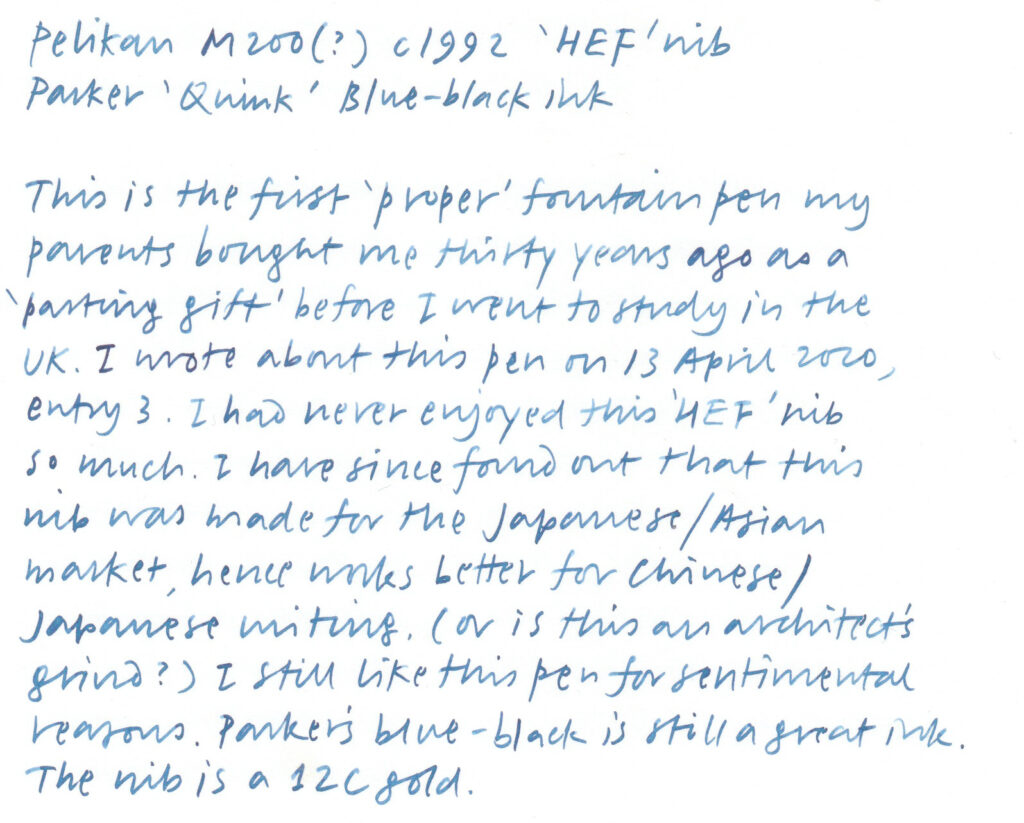 Pelikan M200(?) c1992 'HEF' nib
Parker 'Quink' Blue-black ink
This is the first 'proper' fountain pen my
parents bought me thirty years ago as a
'parting gift' before I went to study in the
UK. I wrote about this pen on 13 April 2020,
entry 3. I had never enjoyed this 'HEF' nib
so much. I have since found out that this
nib was made for the Japanese/Asian
market, hence works better for Chinese/
Japanese writing. (or is this an architect's
grind?) I still like this pen for sentimental
reasons. Parker's blue-black is still a great ink.
The nib is a 12C gold.